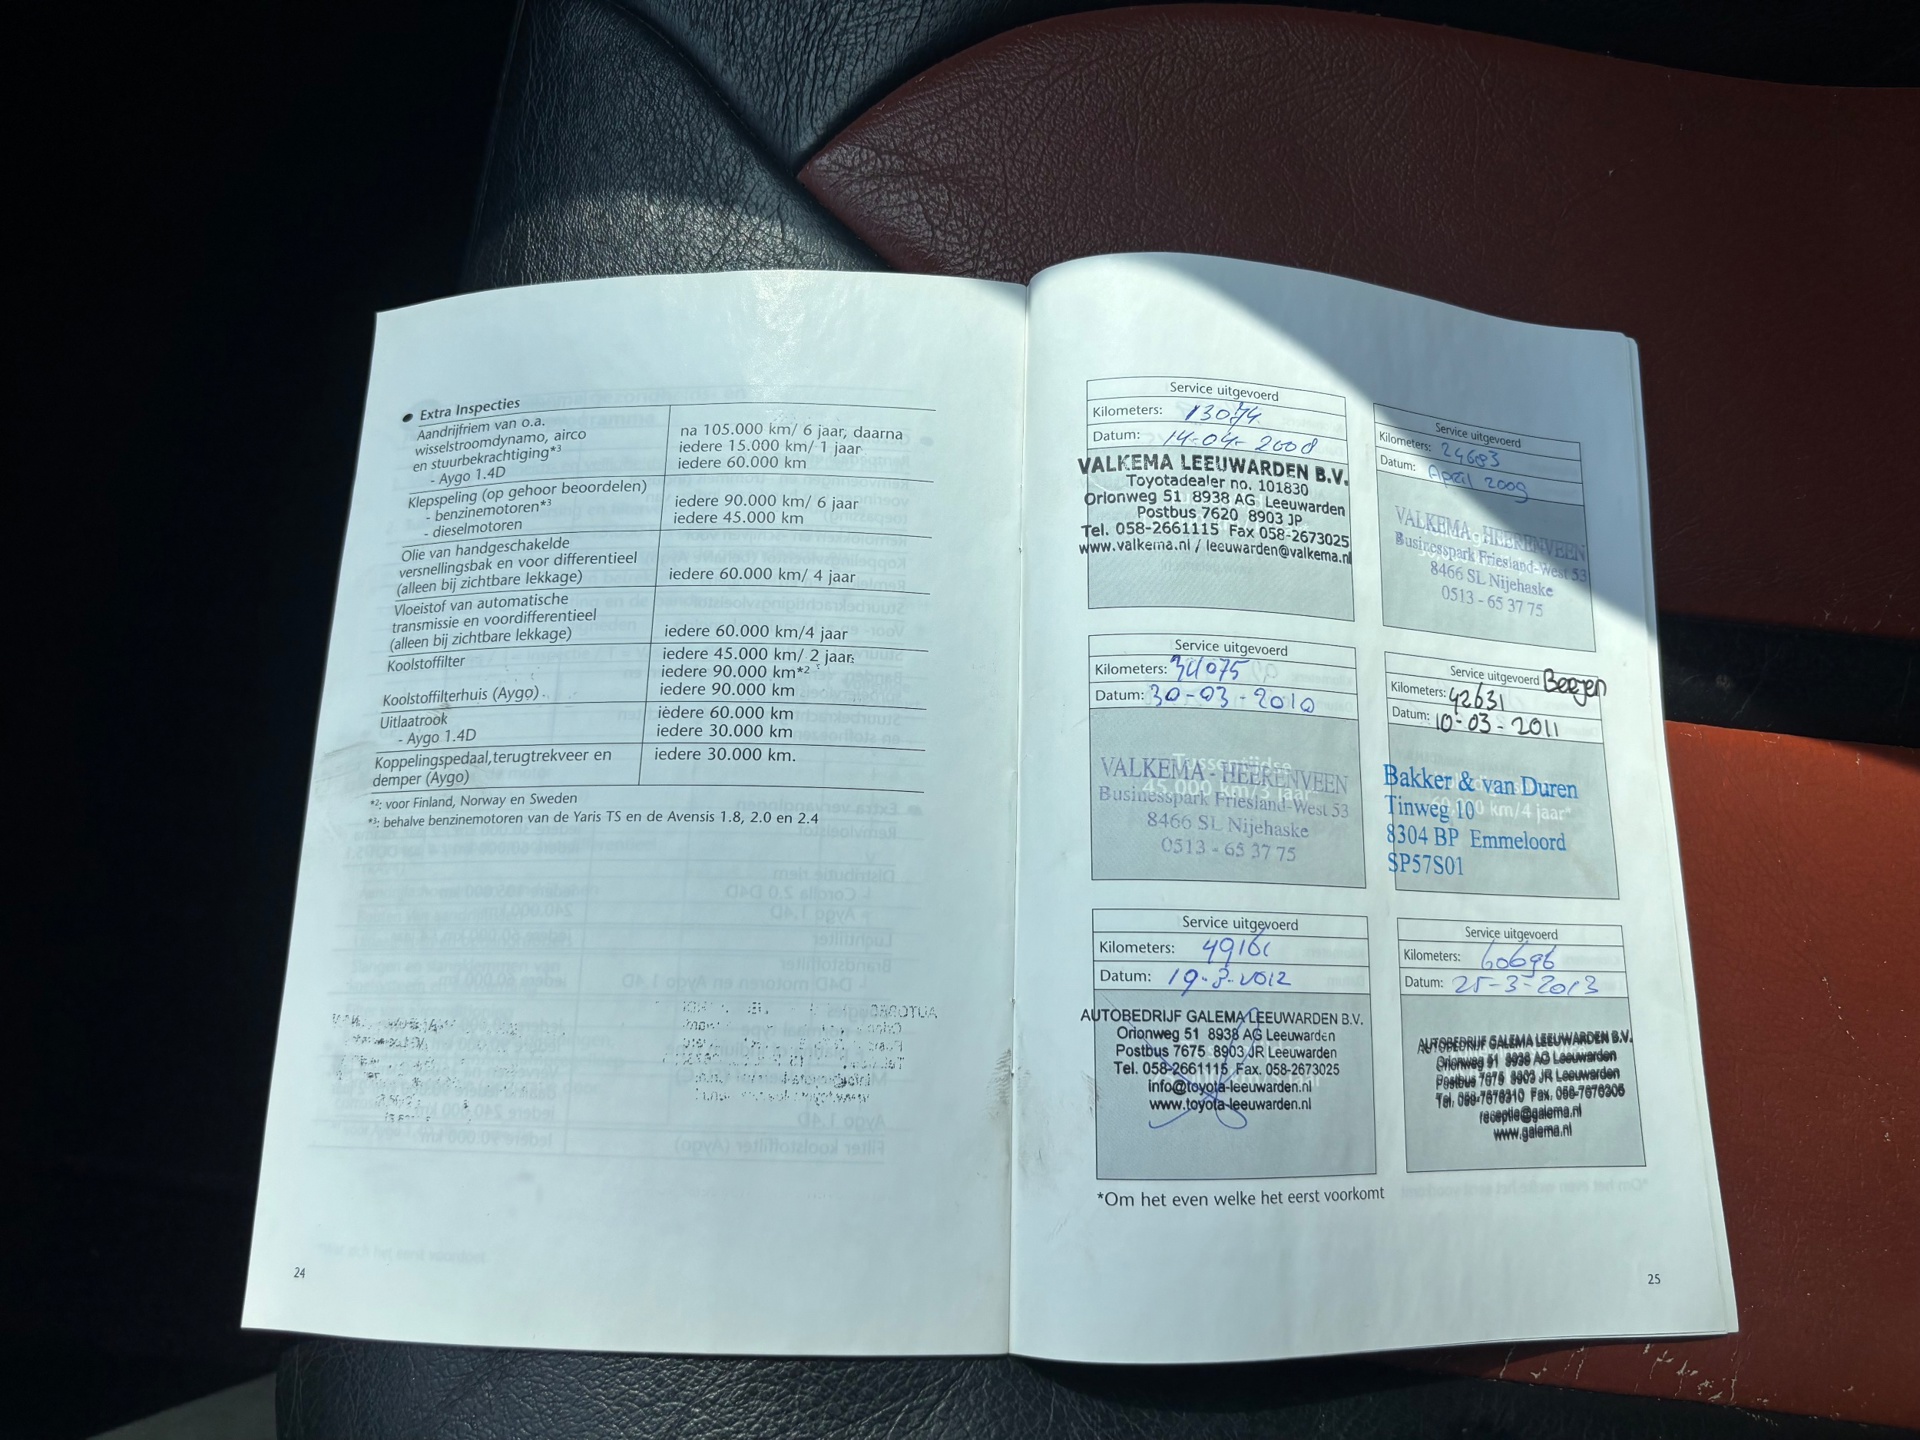 ● Extra Inspecties
Aandrijfriem van o.a.
wisselstroomdynamo, airco
en stuurbekrachtiging*³
- Aygo 1.4D
na 105.000 km/ 6 jaar, daarna
iedere 15.000 km/ 1 jaar
iedere 60.000 km
Klepspeling (op gehoor beoordelen)
- benzinemotoren*³
- dieselmotoren
iedere 90.000 km/ 6 jaar
iedere 45.000 km
Olie van handgeschakelde
versnellingsbak en voor differentieel
(alleen bij zichtbare lekkage)
iedere 60.000 km/ 4 jaar
Vloeistof van automatische
transmissie en voordifferentieel
(alleen bij zichtbare lekkage)
iedere 60.000 km/4 jaar
Koolstoffilter
iedere 45.000 km/ 2 jaar
iedere 90.000 km*²
Koolstoffilterhuis (Aygo)
iedere 90.000 km
Uitlaatrook
- Aygo 1.4D
iedere 60.000 km
iedere 30.000 km
Koppelingspedaal,terugtrekveer en
demper (Aygo)
iedere 30.000 km.
*²: voor Finland, Norway en Sweden
*³: behalve benzinemotoren van de Yaris TS en de Avensis 1.8, 2.0 en 2.4
24
Service uitgevoerd
Kilometers: 13074
Datum: 14-04-2008
VALKEMA LEEUWARDEN B.V.
Toyotadealer no. 101830
Orionweg 51 8938 AG Leeuwarden
Postbus 7620 8903 JP
Tel. 058-2661115 Fax 058-2673025
www.valkema.nl / leeuwarden@valkema.nl
Service uitgevoerd
Kilometers: 24683
Datum: April 2009
VALKEMA - HEERENVEEN
Businesspark Friesland-West 53
8466 SL Nijehaske
0513 - 65 37 75
Service uitgevoerd
Kilometers: 34075
Datum: 30-03-2010
Tussentijdse
45.000 km/3 jaar*
VALKEMA - HEERENVEEN
Businesspark Friesland-West 53
8466 SL Nijehaske
0513 - 65 37 75
Service uitgevoerd
Kilometers: 42631
Datum: 10-03-2011
Bakker & van Duren
Tinweg 10
km/4 jaar*
8304 BP Emmeloord
SP57S01
Service uitgevoerd
Kilometers:
Datum: 19-3-2012
AUTOBEDRIJF GALEMA LEEUWARDEN B.V.
Orionweg 51 8938 AG Leeuwarden
Postbus 7675 8903 JR Leeuwarden
Tel. 058-2661115 Fax. 058-2673025
info@toyota-leeuwarden.nl
www.toyota-leeuwarden.nl
Service uitgevoerd
Kilometers: 60696
Datum: 25-3-2013
AUTOBEDRIJF GALEMA LEEUWARDEN B.V.
Orionweg 51 8938 AG Leeuwarden
Postbus 7675 8903 JR Leeuwarden
receptie@galema.nl
www.galema.nl
*Om het even welke het eerst voorkomt
25